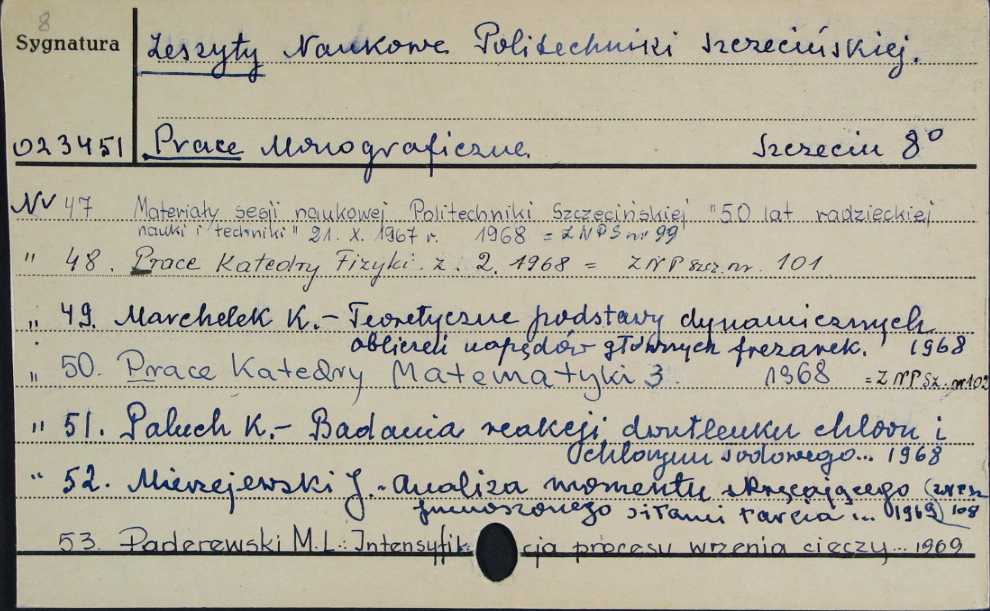 8
Sygnatura
Zeszyty Naukowe Politechniki Szczecińskiej.
023451 Prace Monograficzne Szczecin 8°
Nr 47 Materiały sesji naukowej Politechniki Szczecińskiej "50 lat radzieckiej
nauki i techniki" 21. X. 1967 r. 1968 = ZNPS nr 99
" 48. Prace Katedry Fizyki. z. 2. 1968 = ZNP Szcz. nr. 101
" 49. Marchelek K. - Teoretyczne podstawy dynamicznych
obliczeń napędów głównych frezarek. 1968
" 50. Prace Katedry Matematyki 3. 1968 = ZNP Sz. nr 102
" 51. Paluch K. - Badania reakcji dwutlenku chloru i
chlorynu sodowego... 1968
" 52. Mierzejewski J. - Analiza momentu skręcającego (ZNPSz
przenoszonego siłami tarcia i... 1969) 108
53. Paderewski M.L.: Intensyfik cja procesu wrzenia cieczy... 1969